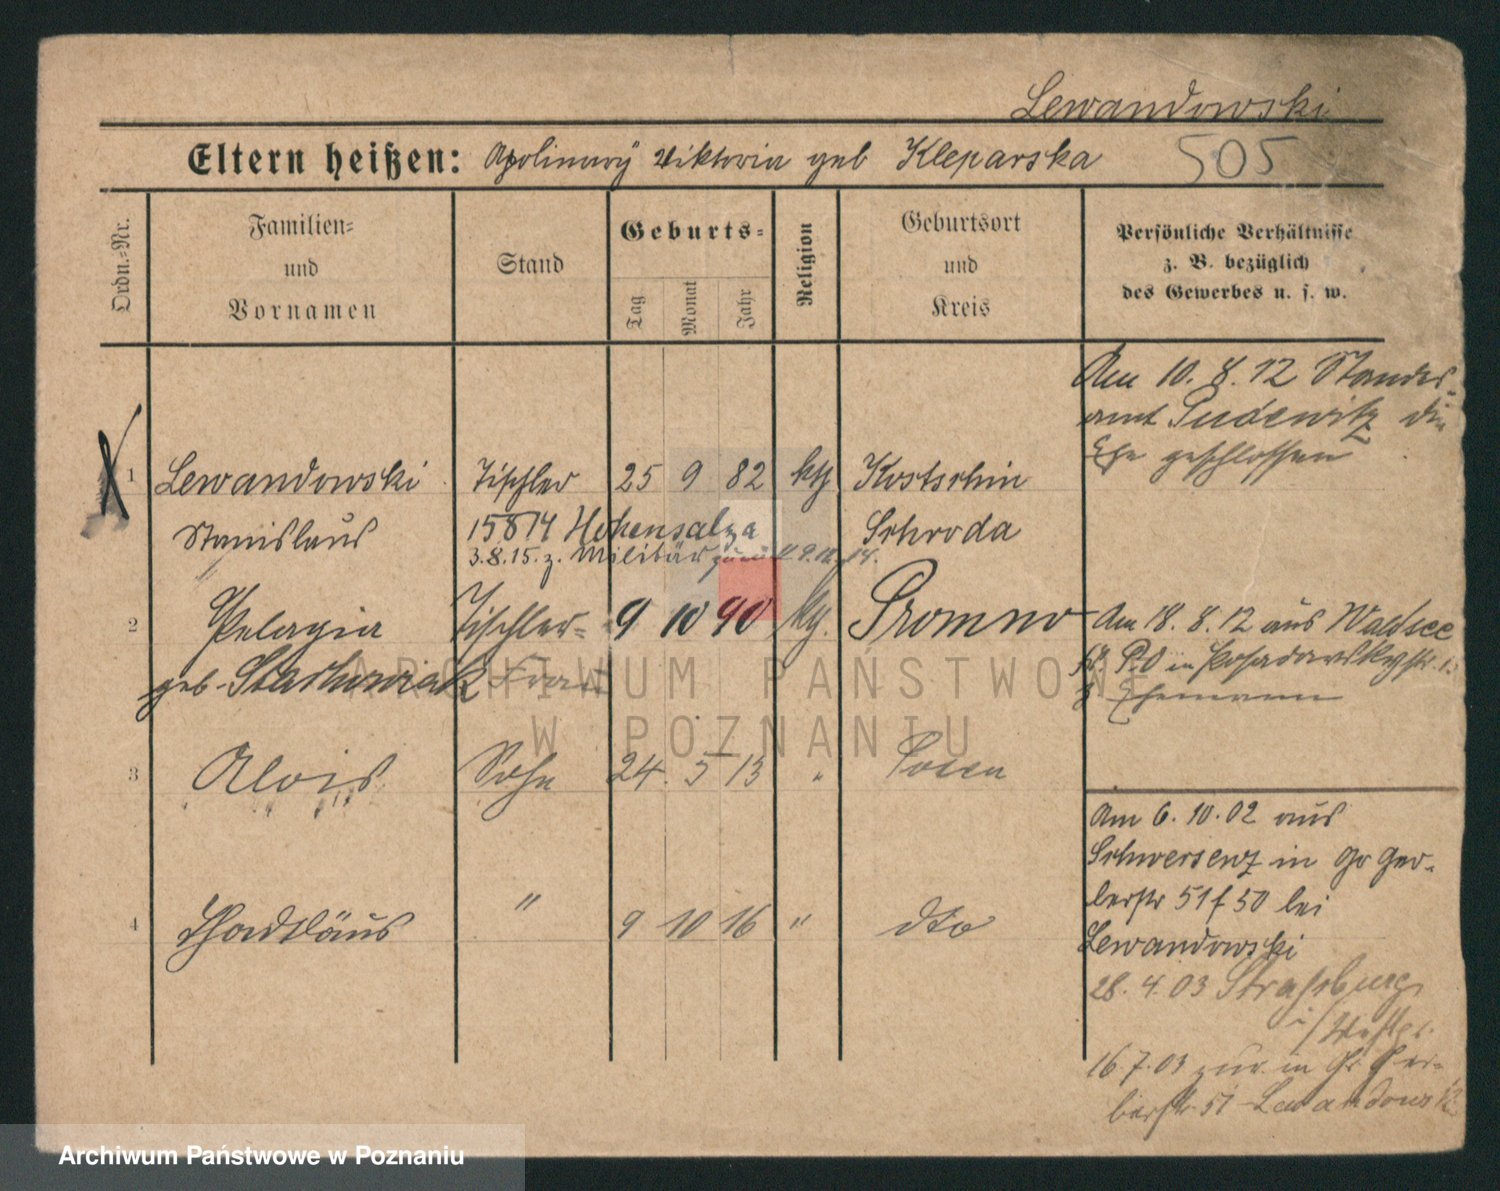 Lewandowski
Eltern heißen: Apolinary Viktoria geb Kleparska 505
Ordn.-Nr.
Familien- und Vornamen
Stand
Geburts-
Tag
Monat
Jahr
Religion
Geburtsort und Kreis
Persönliche Verhältnisse
z. B. bezüglich
des Gewerbes u. s. w.
Am 10. 8. 12 Standes-
amt Pudewitz die
Ehe geschlossen
1 Lewandowski Tischler 25 9 82 kth Kostschin
Stanislaus 15814 Hohensalza Schroda
3.8.15. z. Militär
2 Pelagia Tischler- 9 10 90 kth. Promno
geb. Stachowiak Frau
Am 18. 8. 12 aus Waldsee
P.O in Posadowskystr.
z Ehemann
3 Alois Sohn 24. 5 13 " Posen
4 Thadläus " 9 10 16 " dto
Am 6. 10. 02 aus
Schwersenz in Gr Ger-
berstr 51 f 50 bei
Lewandowski
28. 4. 03 Strasburg
i/Westpr.
16. 7. 03 zur. in Gr. Ger-
berstr. 51 Lewandowski
ARCHIWUM PAŃSTWOWE
W POZNANIU
Archiwum Państwowe w Poznaniu